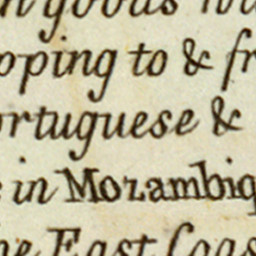 n goods
oping to & fr
ortuguese &
in Mozambiq
he East Coas